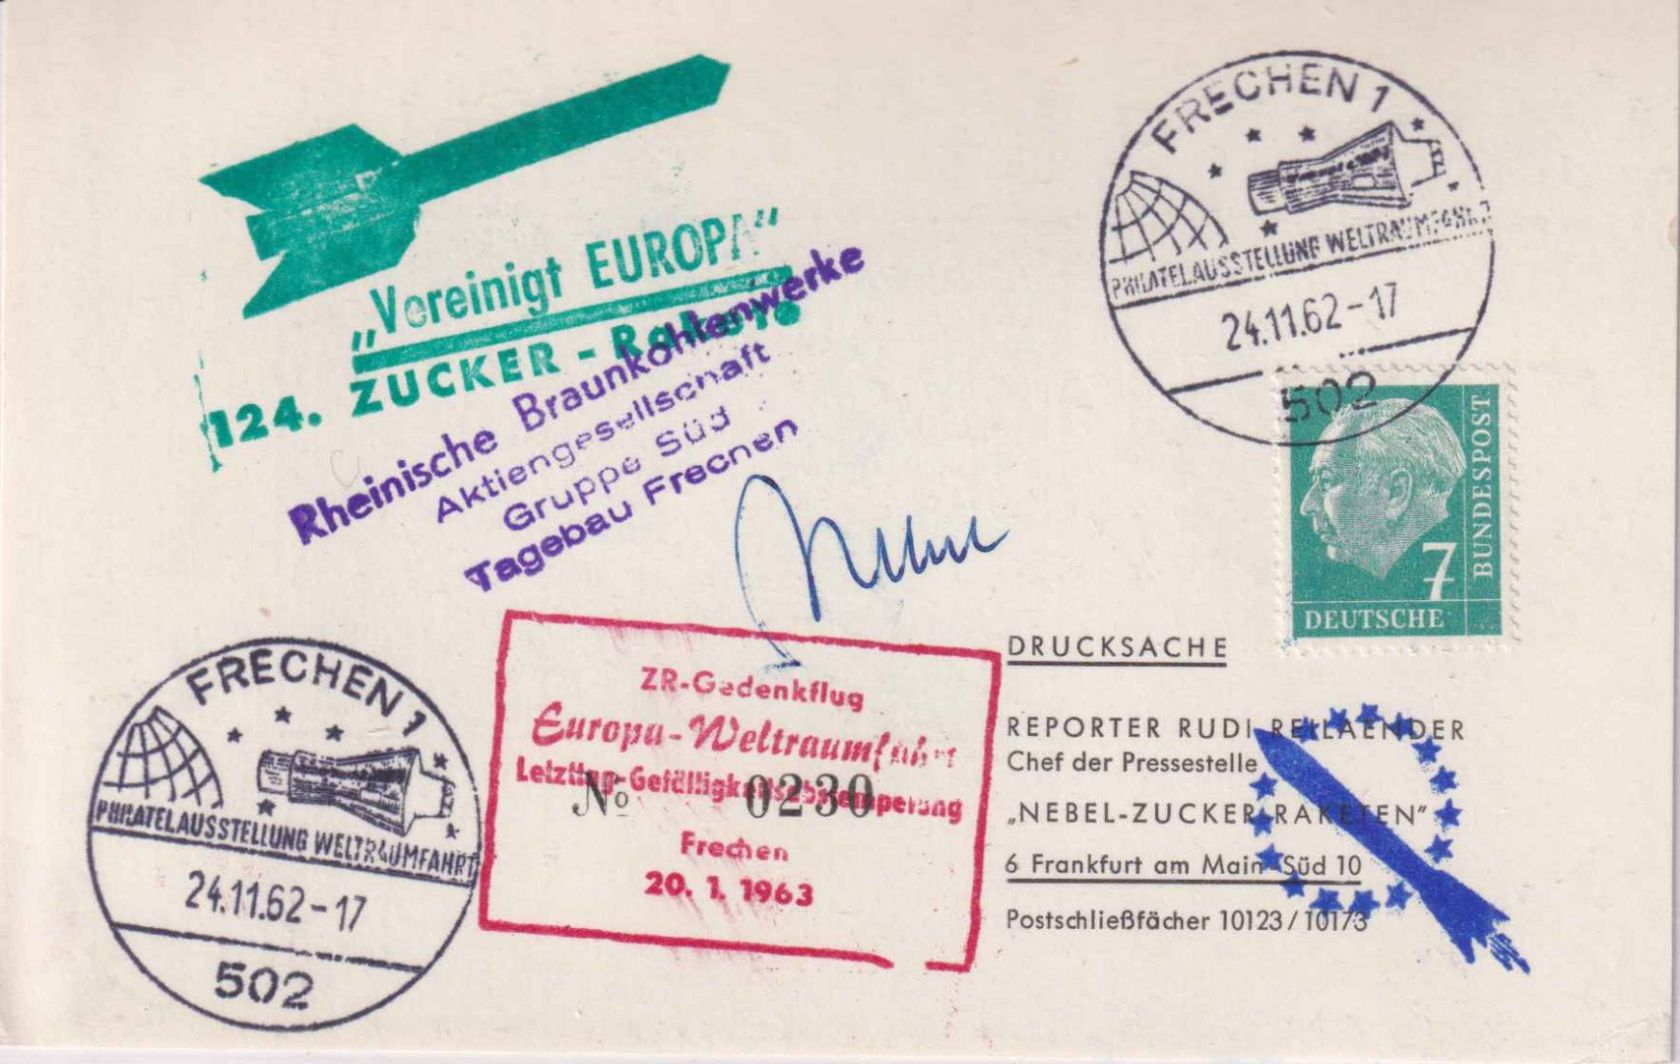 „Vereinigt EUROPA“
124. ZUCKER - Rakete
Rheinische Braunkohlenwerke
Aktiengesellschaft
Gruppe Süd
Tagebau Frechen
FRECHEN 1
PHILATELAUSSTELLUNG WELTRAUMFAHRT
24.11.62-17
502
7
DEUTSCHE
BUNDESPOST
FRECHEN 1
PHILATELAUSSTELLUNG WELTRAUMFAHRT
24.11.62-17
502
ZR-Gedenkflug
Europa-Weltraumfahrt
Letzttag-Gefälligkeitsabstempelung
№ 0230
Frechen
20. 1. 1963
DRUCKSACHE
REPORTER RUDI REILAENDER
Chef der Pressestelle
„NEBEL-ZUCKER-RAKETEN“
6 Frankfurt am Main-Süd 10
Postschließfächer 10123/10173